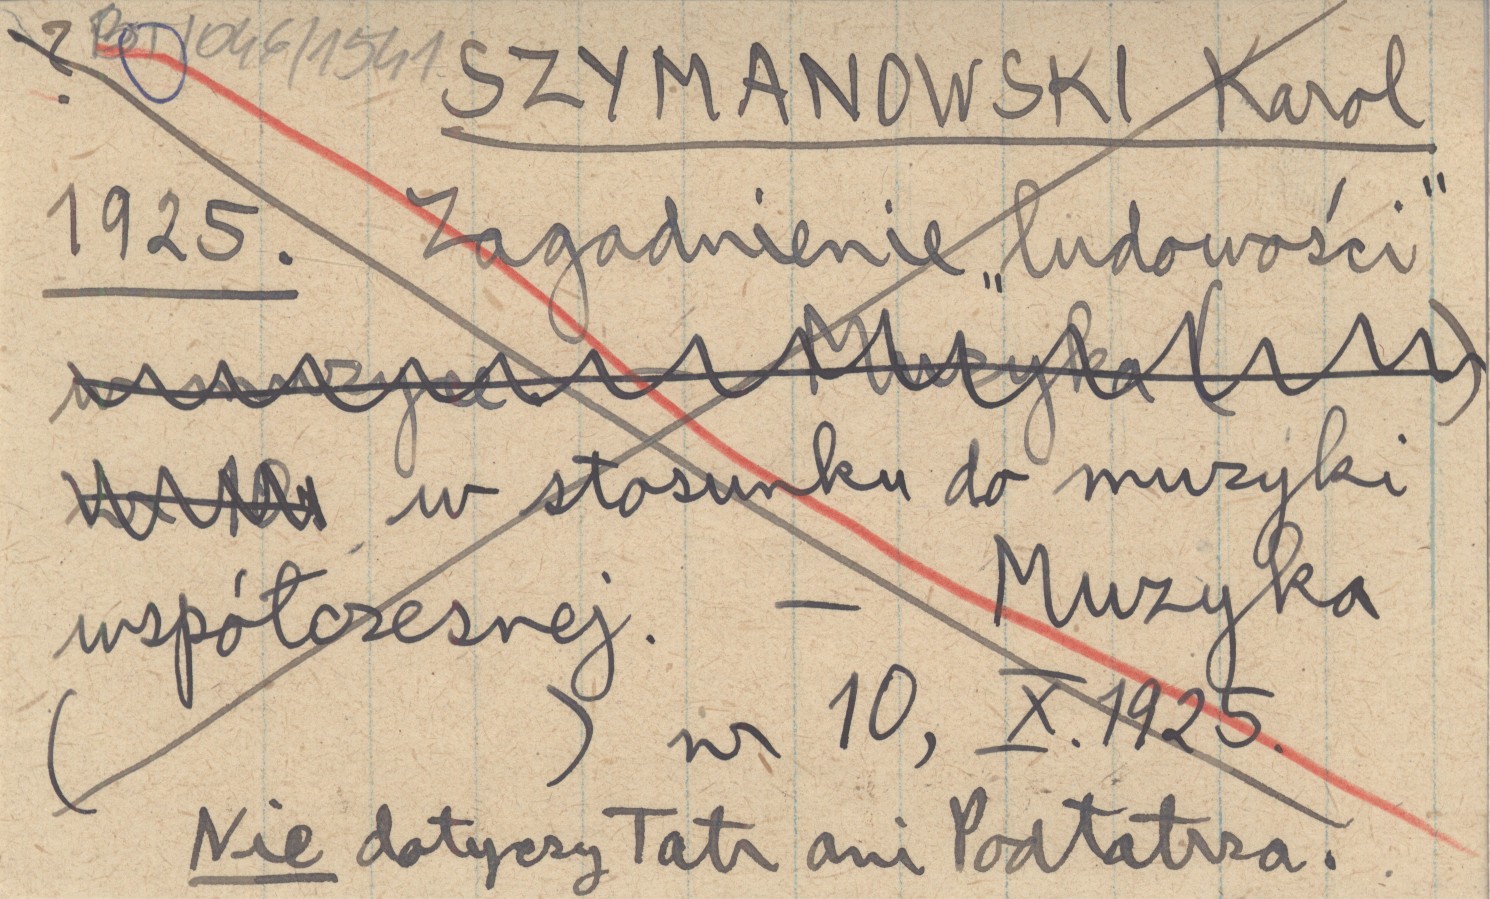 ? BOT/046/1541
SZYMANOWSKI Karol
1925. Zagadnienie „ludowości"
w muzyce. Muzyka ( )
w stosunku do muzyki
współczesnej. — Muzyka
( ) nr 10, X. 1925.
Nie dotyczy Tatr ani Podtatrza.